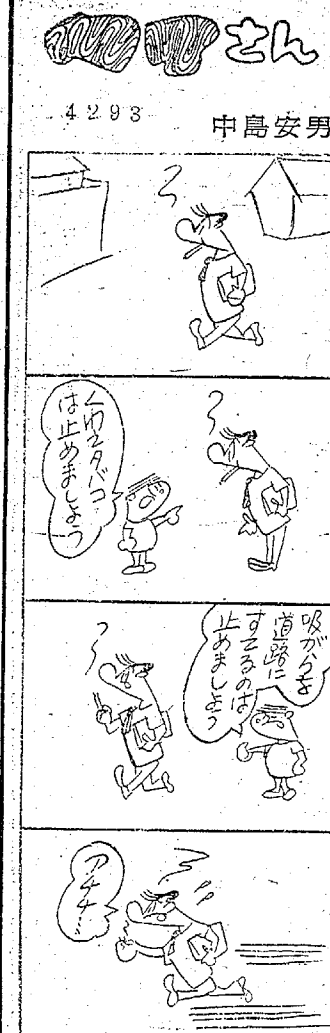 さん
4293
中島安男
くわえタバコ
は止めましょう
吸がらを
道路に
すてるのは
止めましょう
アチチ…